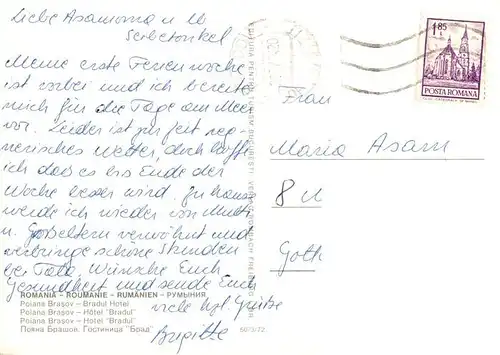 Liebe Asamoma u. lb
Serbetonkel
Meine erste Ferienwoche
ist vorbei und ich bereite
mich für die Tage am Meer
vor. Leider ist zur Zeit reg-
nerisches Wetter, doch hoffe
ich daß es bis Ende der
Woche besser wird. Zu Hause
werde ich wieder von Mutti
u. Großeltern verwöhnt und
verbringe schöne Stunden
bei Tata. Wünsche Euch
Gesundheit und sende Euch
viele hzl. Grüße
Brigitte
ROMANIA – ROUMANIE – RUMÄNIEN – РУМЫНИЯ
Poiana Brașov – Bradul Hotel
Poiana Brașov – Hôtel "Bradul"
Poiana Brașov – Hotel "Bradul"
Пояна Брашов. Гостиница "Брад"
5073/72
1,85
POSTA ROMANA
Frau
Maria Asam
8 M
Goth